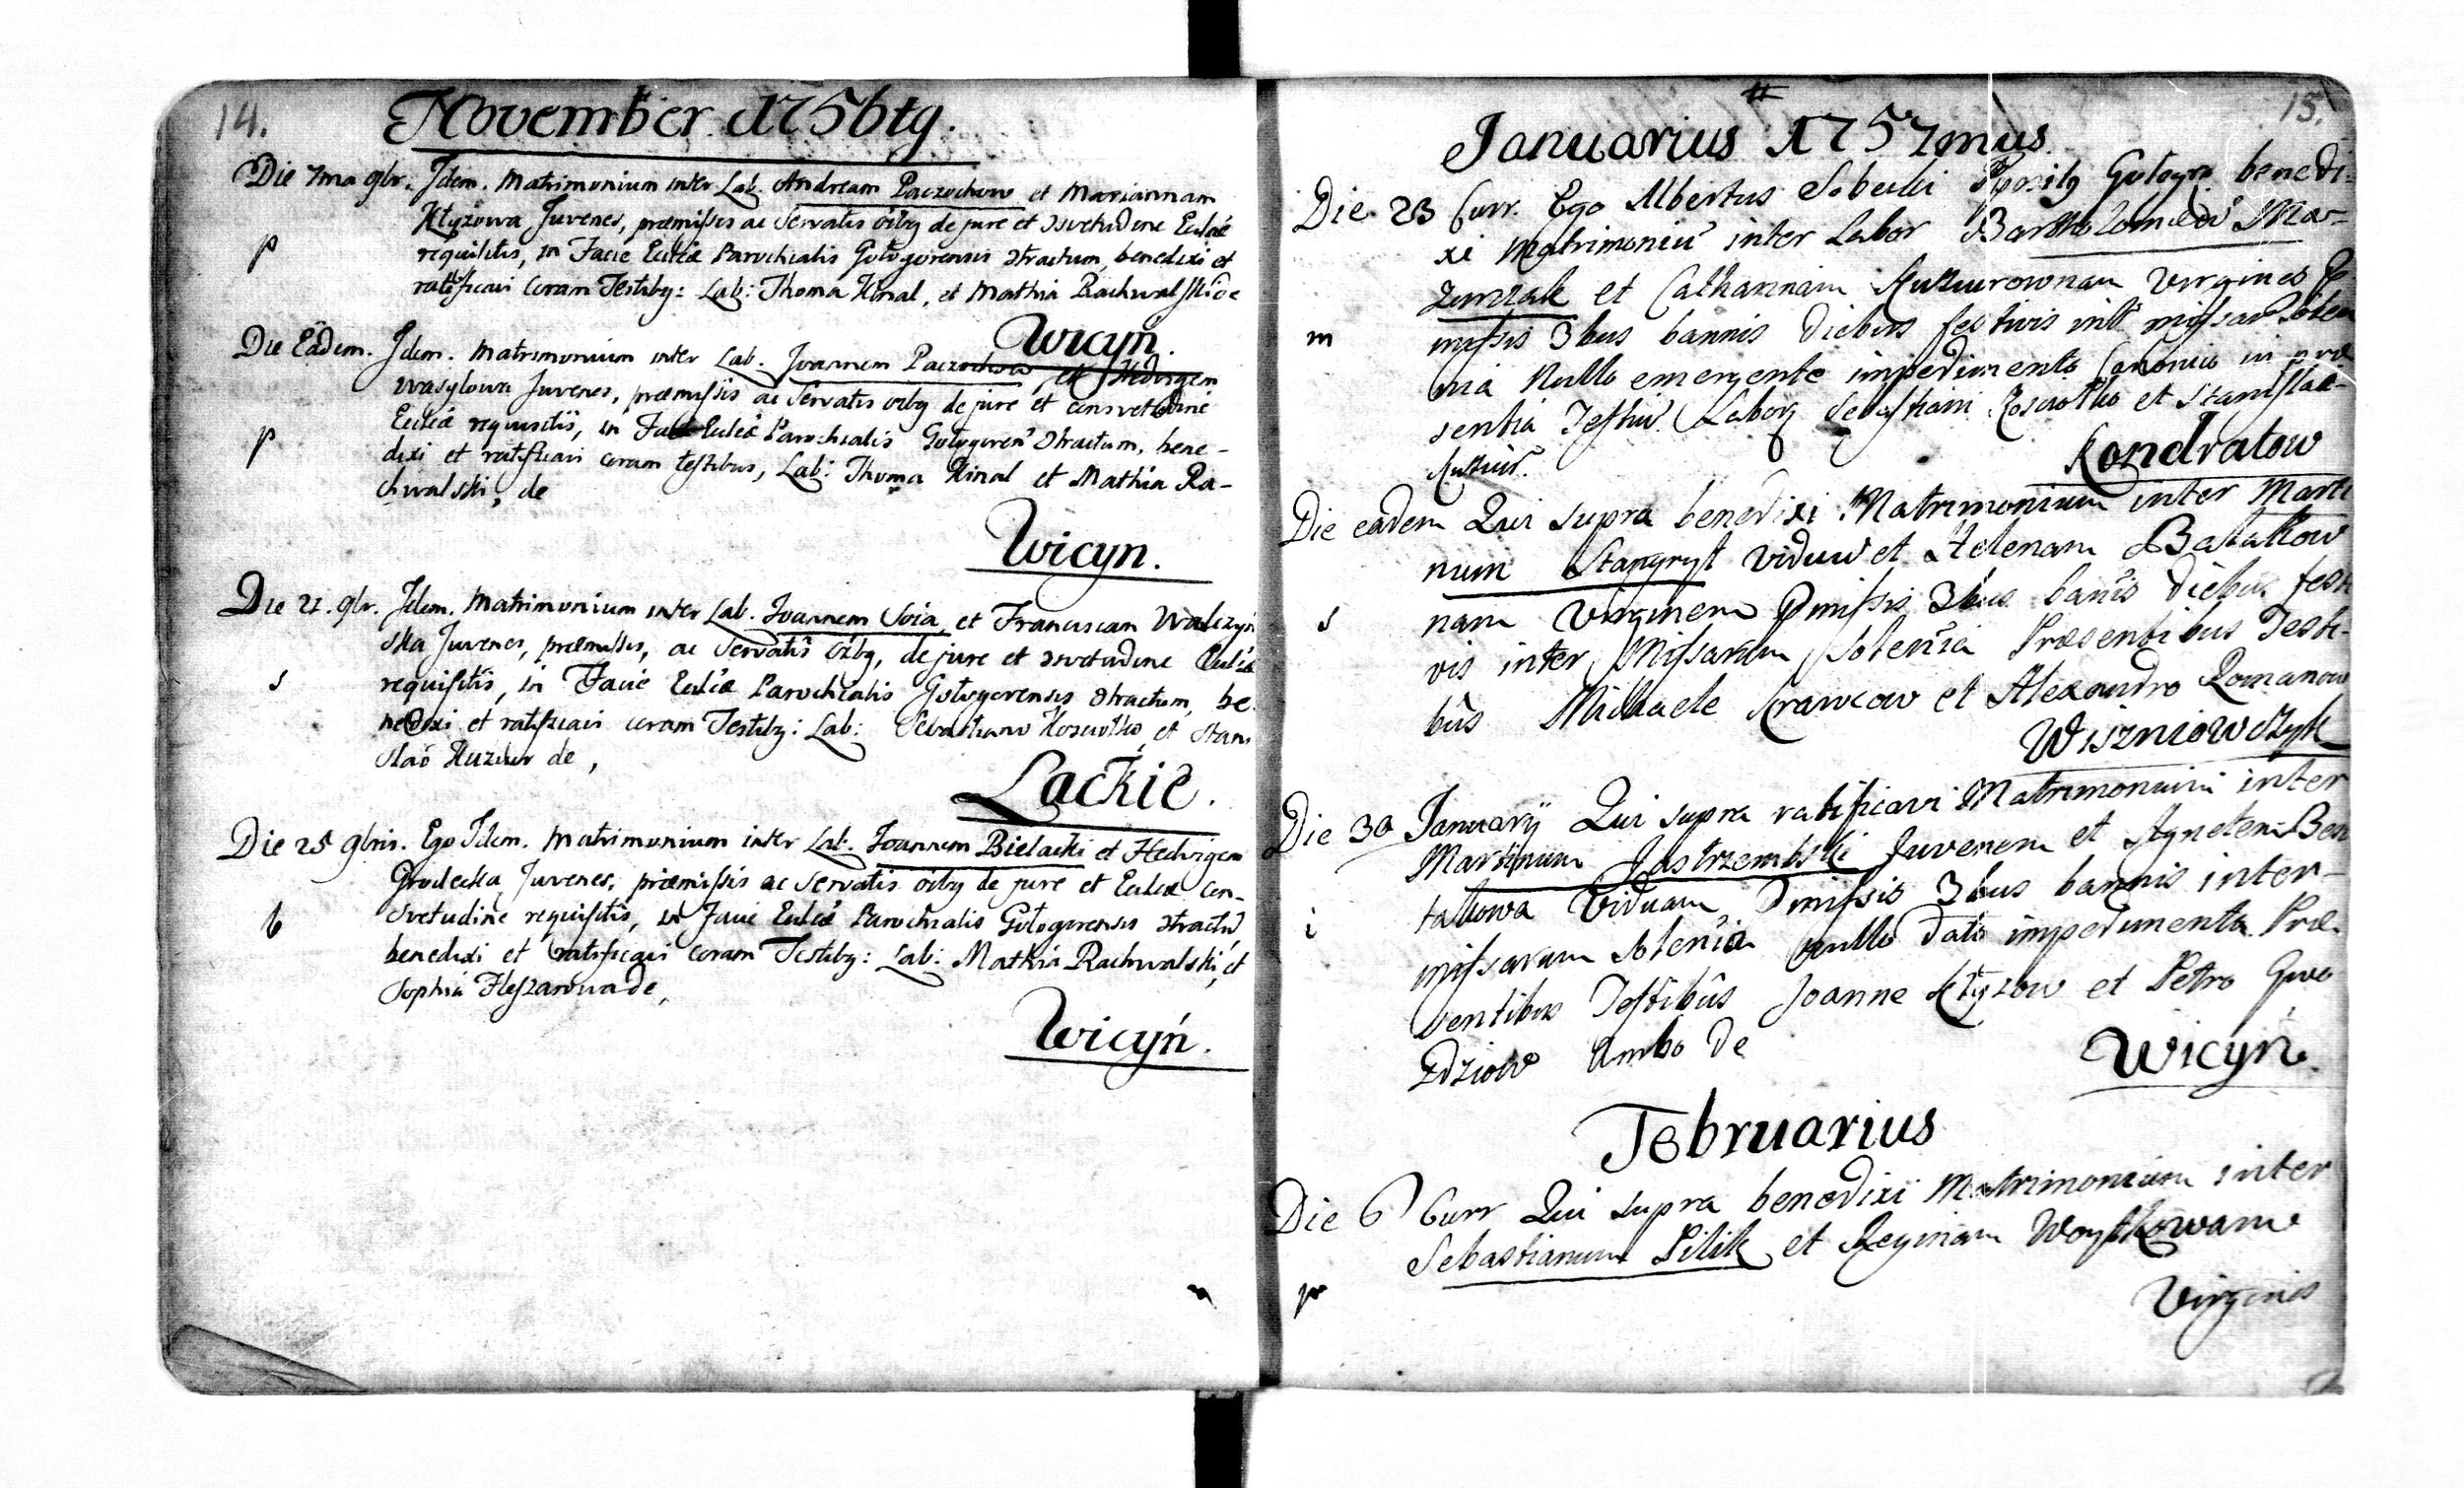 14.
November 1756tg.
Die 7ma 9br. Idem. Matrimonium inter Lab. Andream Paczochow et Mariannam
Klyżowa Juvenes, præmissis ac Servatis oibg de jure et 3svetudine Eccliæ
p
requisitis, in Facie Eccliæ Parochialis Gologorensis 3tractum, benedixi et
ratificavi Coram Testibg: Lab: Thoma Kinal, et Mathia Rachwalski de
Wicyń.
Die Eâdem. Idem. Matrimonium inter Lab. Joannem Paczochow, et Hedvigem
Wasylowa Juvenes, præmissis ac Servatis oibg de jure et consvetudine
Eccliæ requisitis, in Facie Eccliæ Parochialis Gologoren 3tractum, bene-
p
dixi et ratificavi coram testibus, Lab: Thoma Kinal et Mathia Ra-
chwalski, de
Wicyn.
Die 21. 9br. Idem. Matrimonium inter Lab. Joannem Soia et Franciscam Walczyń
ska Juvenes, præmissis, ac Servatis oibg, de jure et 3svetudine Eccliæ
s
requisitis, in Facie Eccliæ Parochialis Gologorensis 3tractum, be-
nedixi et ratificavi coram Testibg: Lab: Sebastiano Kosciołko, et Stani
slaô Kuziur de,
Lackie.
Die 25 9bris. Ego Idem. Matrimonium inter Lab. Joannem Bielacki et Hedvigem
Grodecka Juvenes, præmissis ac Servatis oibg de jure et Eccliæ con-
b
svetudine requisitis, in Facie Eccliæ Parochialis Gologorensis 3tractû
benedixi et ratificavi coram Testibg: Lab: Mathia Rachwalski, et
Sophia Fleszarowa de,
Wicyń.
15.
Januarius 1757mus
Die 23 Curr. Ego Albertus Ppositg benedi-
xi Matrimoniû inter Labor Bartholomeû Ma-
et Catharinam Virgines P
m
missis 3bus bannis diebus festivis int missar solen
nia Nullo emergente impedimento Canonico in præ
sentia Testiû Labor Sebastiani et Stanislai
Kuziur.
Kondratow
Die eadem Qui supra benedixi Matrimonium inter Marti
num Stangryt Viduû et Helenam Bałatkow
s
nam Virginem Pmissis 3bus banis diebus festi
vis inter Missarum Solenia Præsentibus Testi-
bûs Michaele Krawcow et Alexandro Romanow
Wiszniowczyk
Die 30 Januarÿ Qui supra ratificavi Matrimonium inter
Martinum Jastrzembski Juvenem et Agnetem Ben
tałkowa Viduam Pmissis 3bus bannis inter-
i
missarum solenia nullo dato impedimento Præ-
sentibus Testibûs Joanne Klyzow et Petro Gwo
zdziow Ambo de
Wicyń.
Februarius
Die 6 Curr Qui supra benedixi Matrimonium inter
Sebastianum Pilik et Reginam Woytkowam
p
Virgines